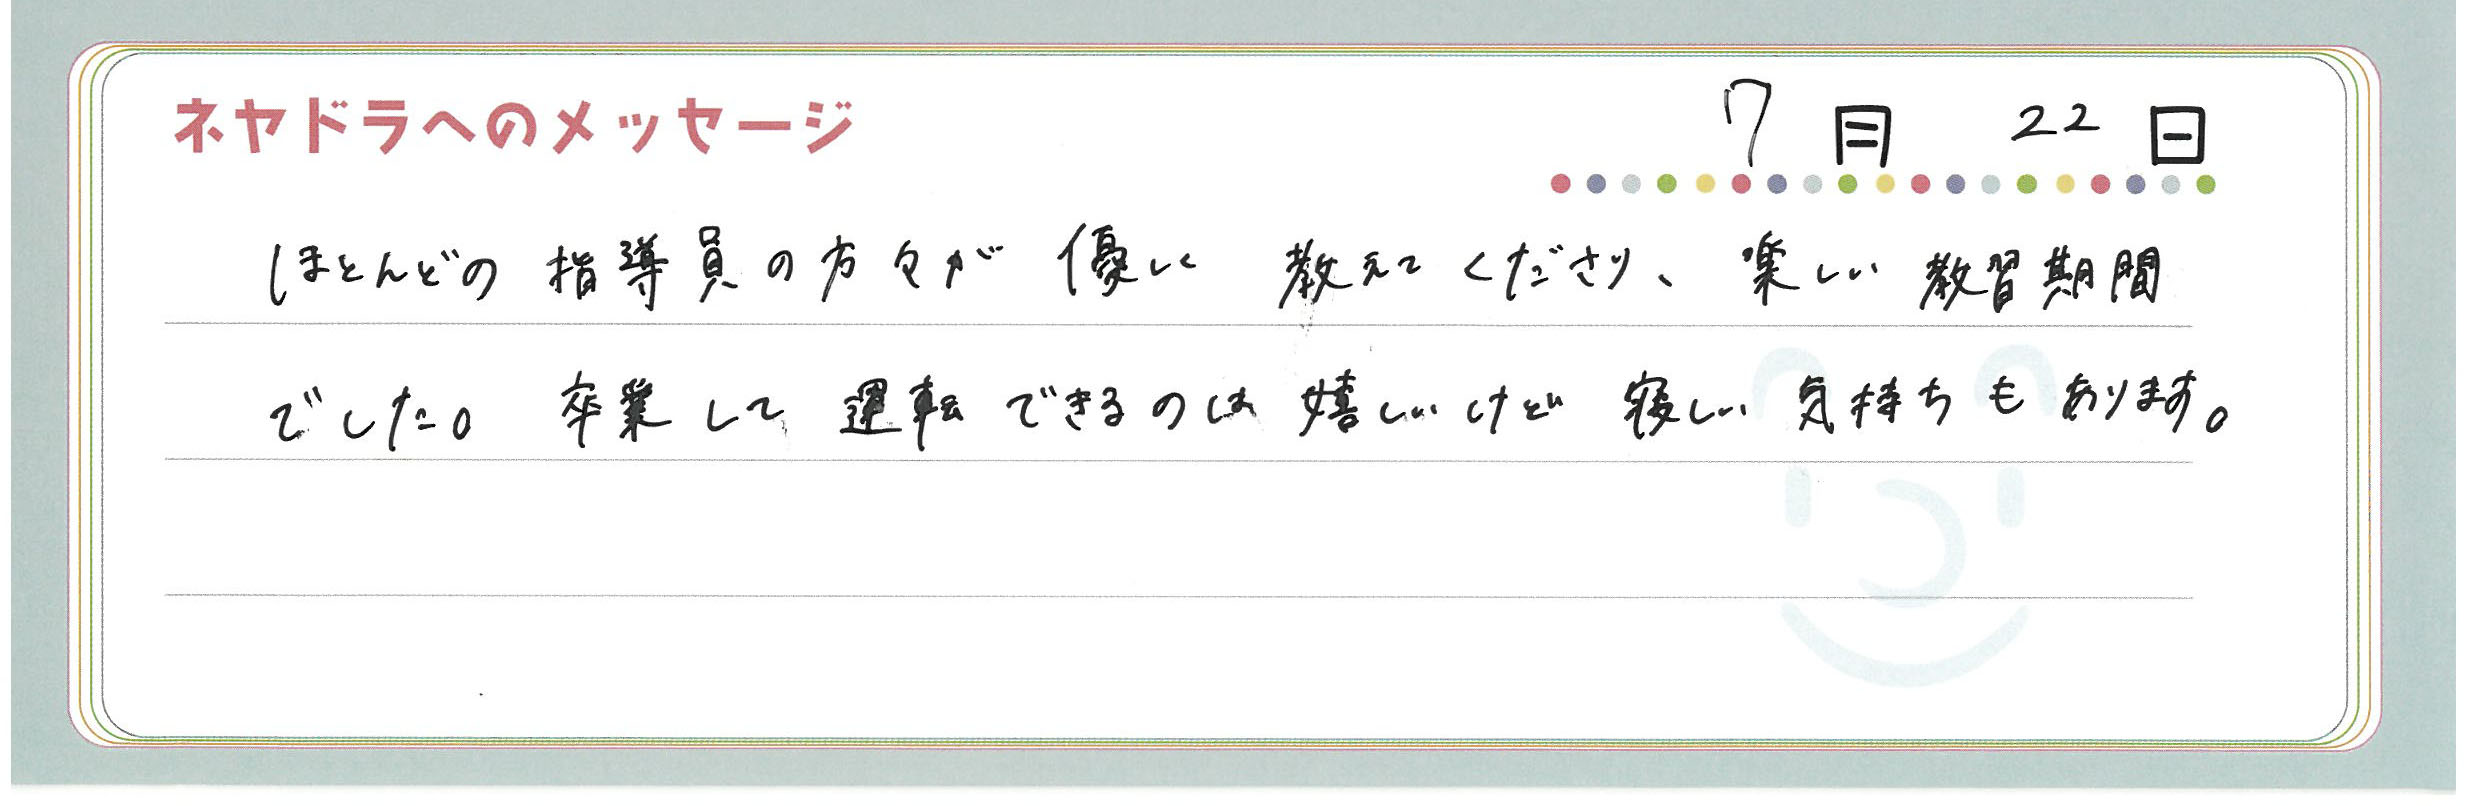 ネヤドラへのメッセージ
7月 22日
ほとんどの指導員の方々が優しく教えてくださり、楽しい教習期間
でした。卒業して運転できるのは嬉しいけど寂しい気持ちもあります。